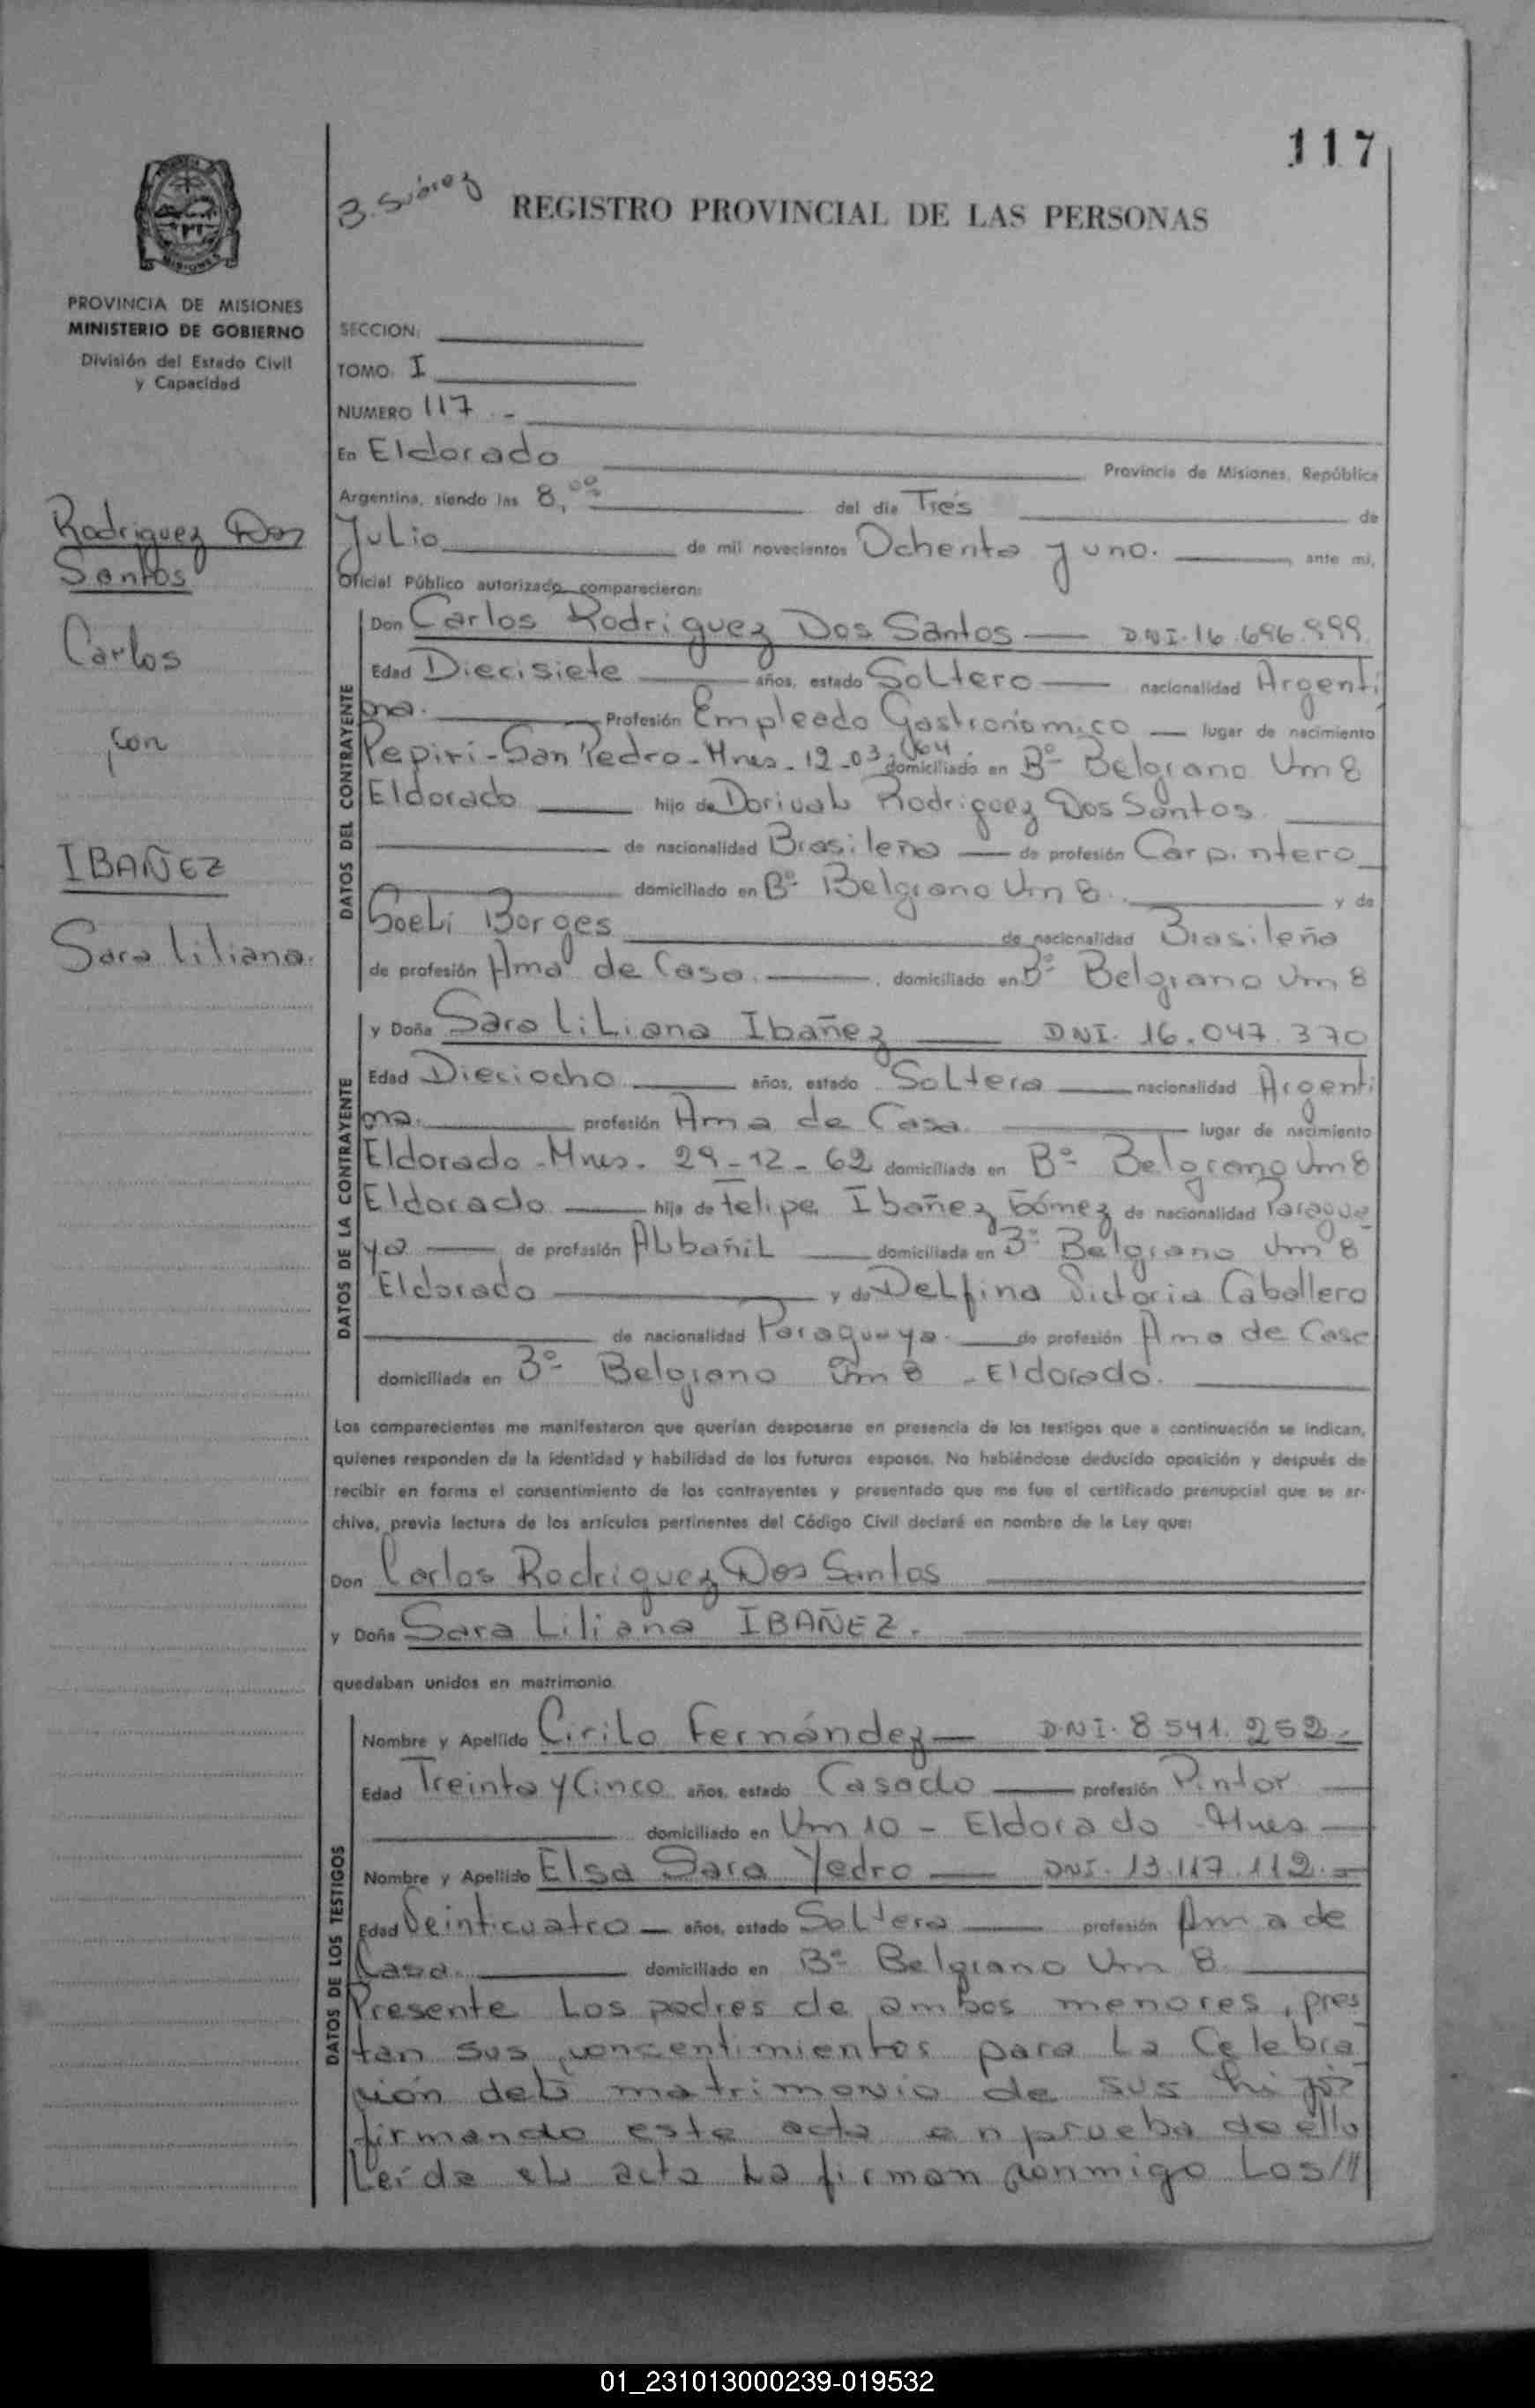 117
B. Suárez
REGISTRO PROVINCIAL DE LAS PERSONAS
MISIONES
PROVINCIA DE MISIONES
MINISTERIO DE GOBIERNO
División del Estado Civil
y Capacidad
SECCION:
TOMO: I
NUMERO 117.-
En Eldorado Provincia de Misiones, República
Argentina, siendo las 8,00 del día Trés de
Julio de mil novecientos Ochenta y uno. ante mi,
Oficial Público autorizado comparecieron:
Rodriguez Dos
Santos
Carlos
con
IBAÑEZ
Sara Liliana.
DATOS DEL CONTRAYENTE
Don Carlos Rodriguez Dos Santos — DNI. 16.696.999
Edad Diecisiete años, estado Soltero — nacionalidad Argenti
na. Profesión Empleado Gastronómico — lugar de nacimiento
Pepiri-San Pedro-Mnes-12-03-64 domiciliado en Bº Belgrano Km 8
Eldorado hijo de Dorival Rodriguez Dos Santos
de nacionalidad Brasileño — de profesión Carpintero
domiciliado en Bº Belgrano Km 8. y de
Soeli Borges de nacionalidad Brasileña
de profesión Ama de Casa. domiciliado en Bº Belgrano Km 8
DATOS DE LA CONTRAYENTE
y Doña Sara Liliana Ibañez DNI. 16.047.370
Edad Dieciocho años, estado Soltera nacionalidad Argenti
na. profesión Ama de Casa. lugar de nacimiento
Eldorado-Mnes. 29-12-62 domiciliada en Bº Belgrano Km 8
Eldorado hija de Felipe Ibañez Gómez de nacionalidad Paragua
ya de profesión Albañil domiciliada en Bº Belgrano Km 8
Eldorado y de Delfina Victoria Caballero
de nacionalidad Paraguaya. de profesión Ama de Casa
domiciliada en Bº Belgrano Km 8 - Eldorado.
Los comparecientes me manifestaron que querían desposarse en presencia de los testigos que a continuación se indican,
quienes responden de la identidad y habilidad de los futuros esposos. No habiéndose deducido oposición y después de
recibir en forma el consentimiento de los contrayentes y presentado que me fue el certificado prenupcial que se ar-
chiva, previa lectura de los artículos pertinentes del Código Civil declaré en nombre de la Ley que:
Don Carlos Rodriguez Dos Santos
y Doña Sara Liliana IBAÑEZ.
quedaban unidos en matrimonio.
DATOS DE LOS TESTIGOS
Nombre y Apellido Cirilo Fernández — DNI. 8541.252-
Edad Treinta y Cinco años, estado Casado — profesión Pintor
domiciliado en Km 10 - Eldorado Mnes
Nombre y Apellido Elsa Sara Yedro — DNI. 13.117.112.-
Edad Veinticuatro — años, estado Soltera profesión Ama de
Casa. domiciliado en Bº Belgrano Km 8
Presente Los padres de ambos menores, pres
tan sus consentimientos para La Celebra
ción del matrimonio de sus hijos
firmando este acta en prueba de ello
Leída el acta La firman conmigo Los///
01_231013000239-019532